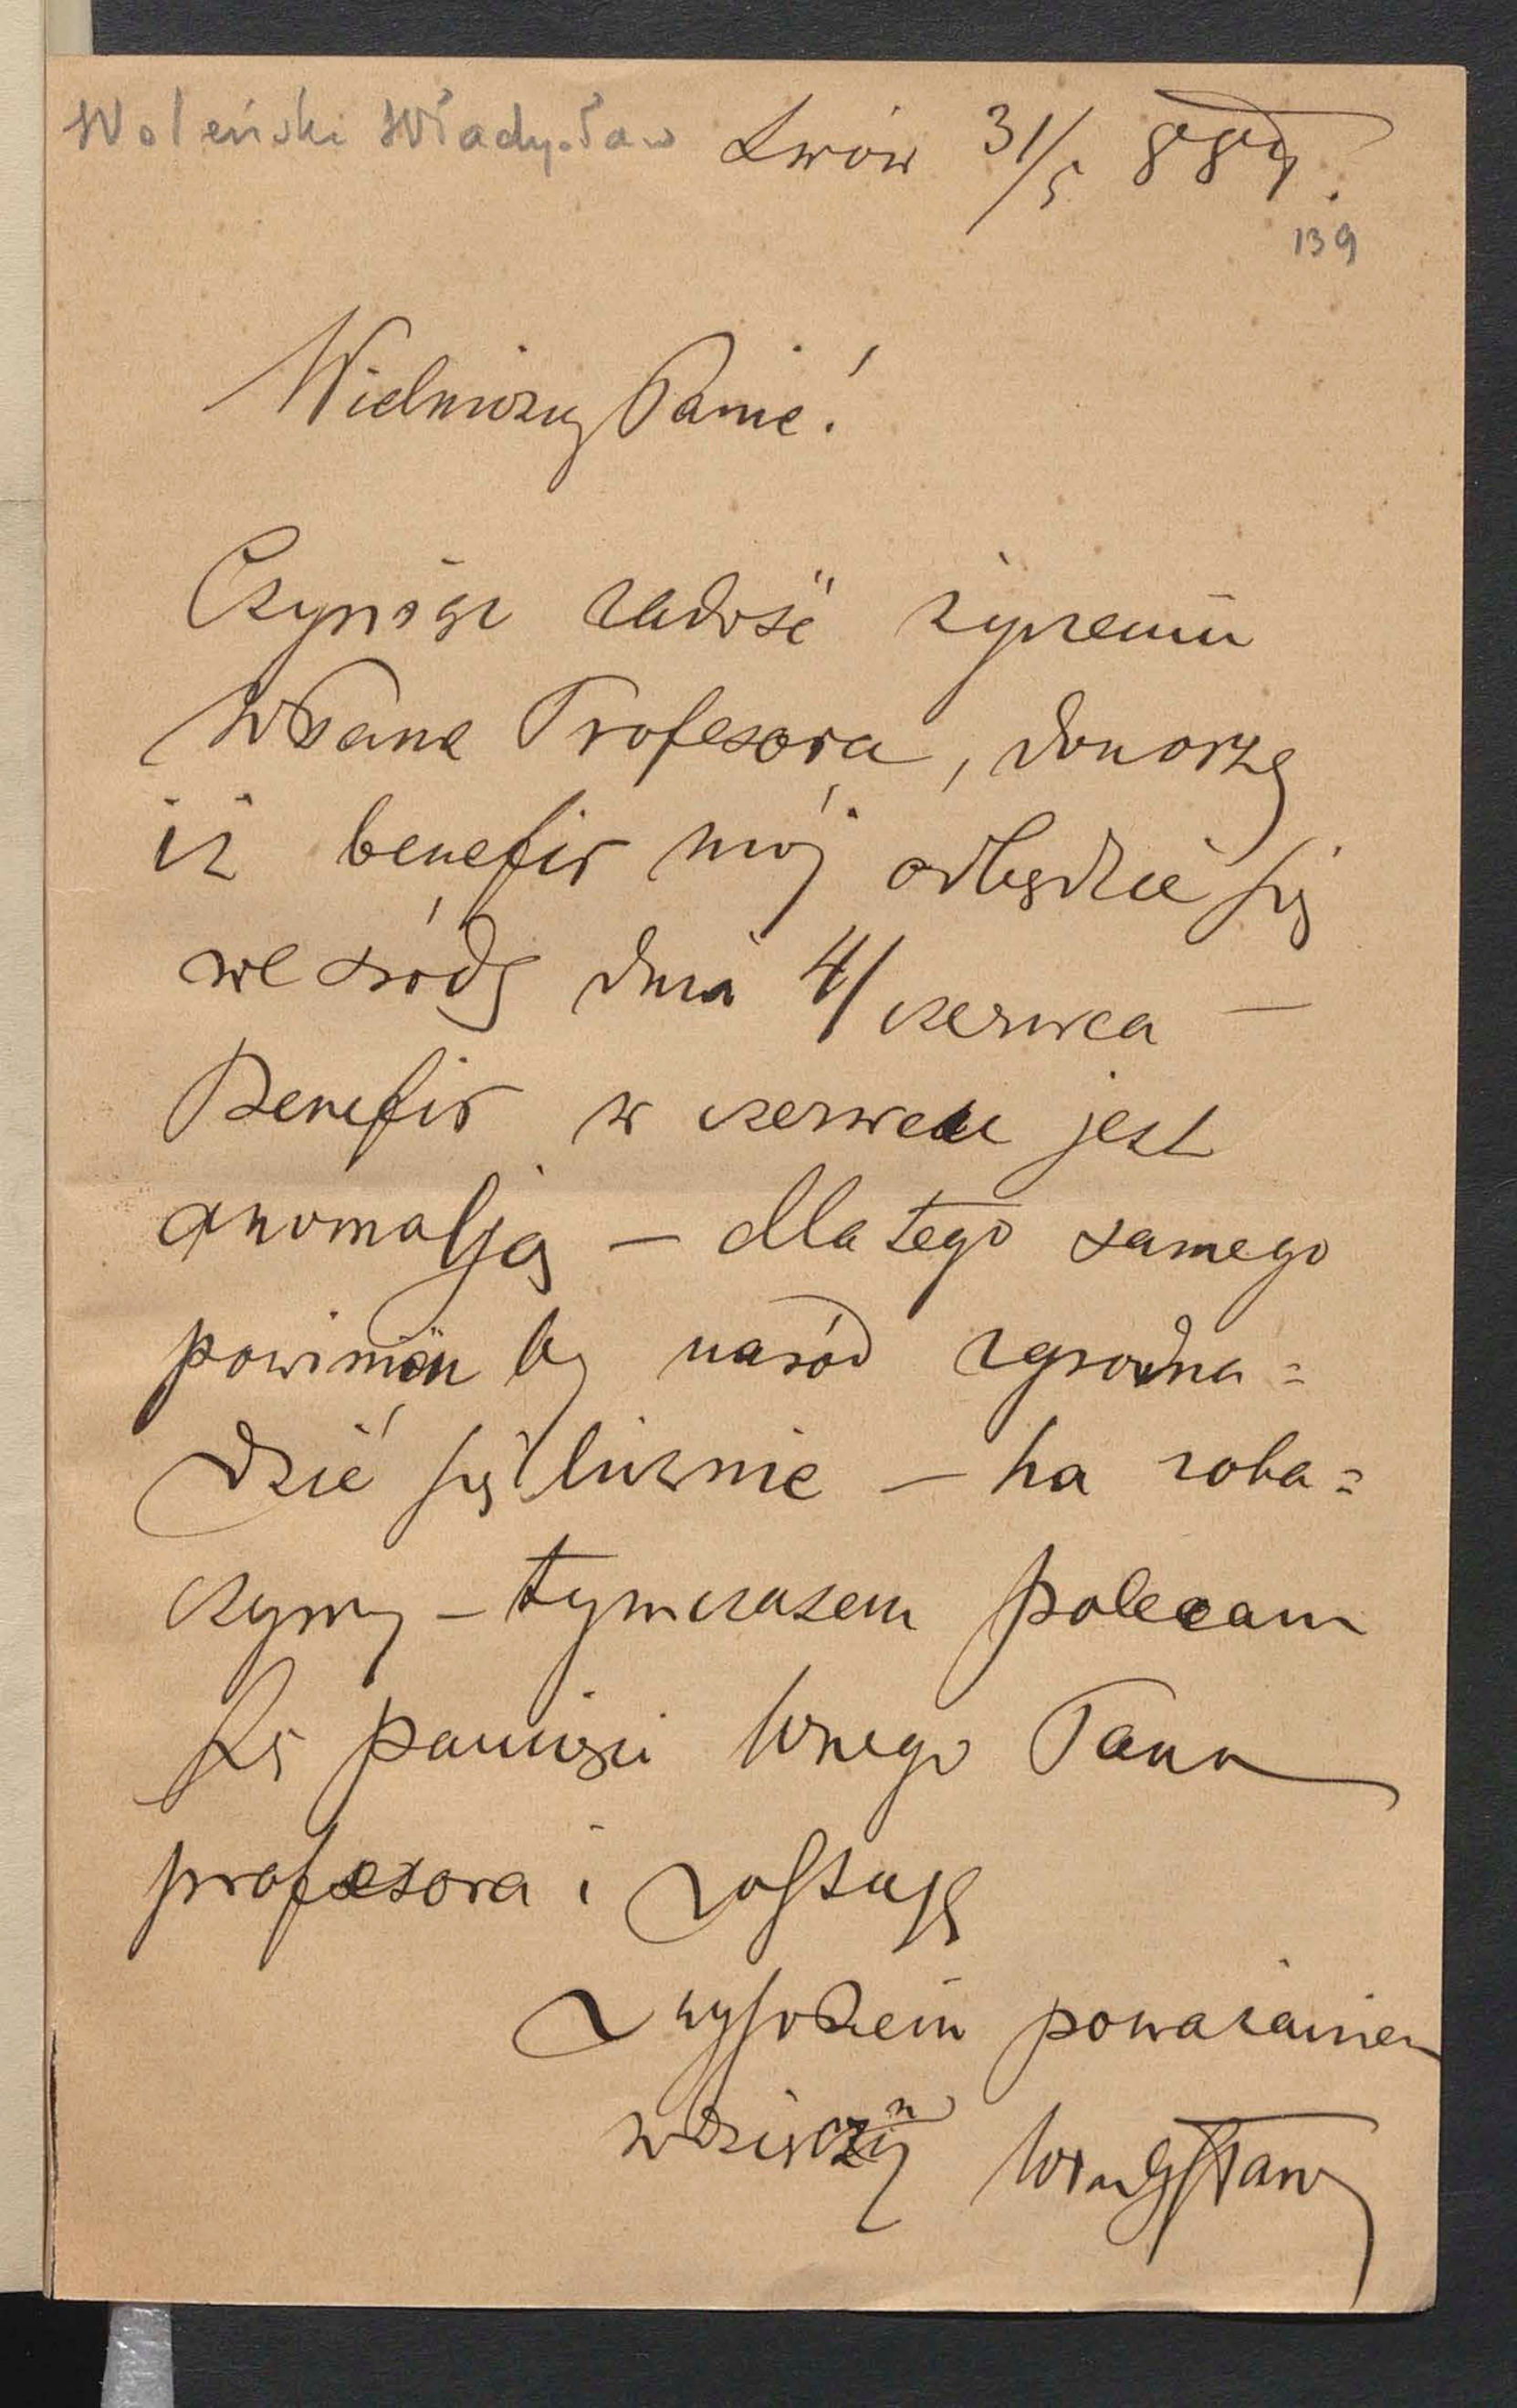 Woleński Władysław Lwów 31/5 884.
139
Wielmożny Panie!
Czyniąc zadość życzeniu
WPana Profesora, donoszę
iż benefis mój odbędzie się
we środę dnia 4/ czerwca —
Benefis w czerwcu jest
anomalją — dla tego samego
powinien by naród zgroma=
dzić się licznie — ha zoba=
czymy — tymczasem polecam
się pamięci Wnego Pana
profesora i zostaję
Z wysokiem poważaniem
wdzięczny Władysław